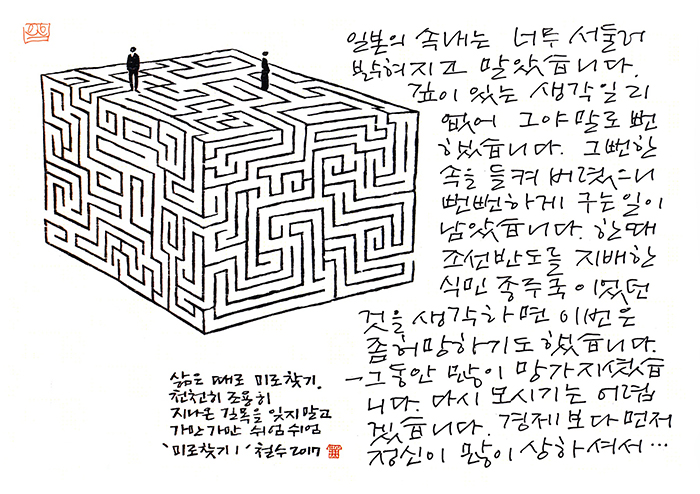 일본의 속내는 너무 서둘러
밝혀지고 말았습니다.
깊이 있는 생각일 리
없어 그야말로 뻔
했습니다. 그 뻔한
속을 들켜 버렸으니
뻔뻔하게 구는 일이
남았습니다. 한때
조선반도를 지배한
식민 종주국이었던
것을 생각하면 이번은
좀 허망하기도 했습니다.
- 그동안 많이 망가지셨습
니다. 다시 보시기는 어렵
겠습니다. 경제보다 먼저
정신이 많이 상하셔서 …
삶은 때로 미로찾기.
천천히 조용히
지나온 길목을 잊지 말고
가만가만 쉬엄쉬엄
'미로찾기 1' 철수 2017